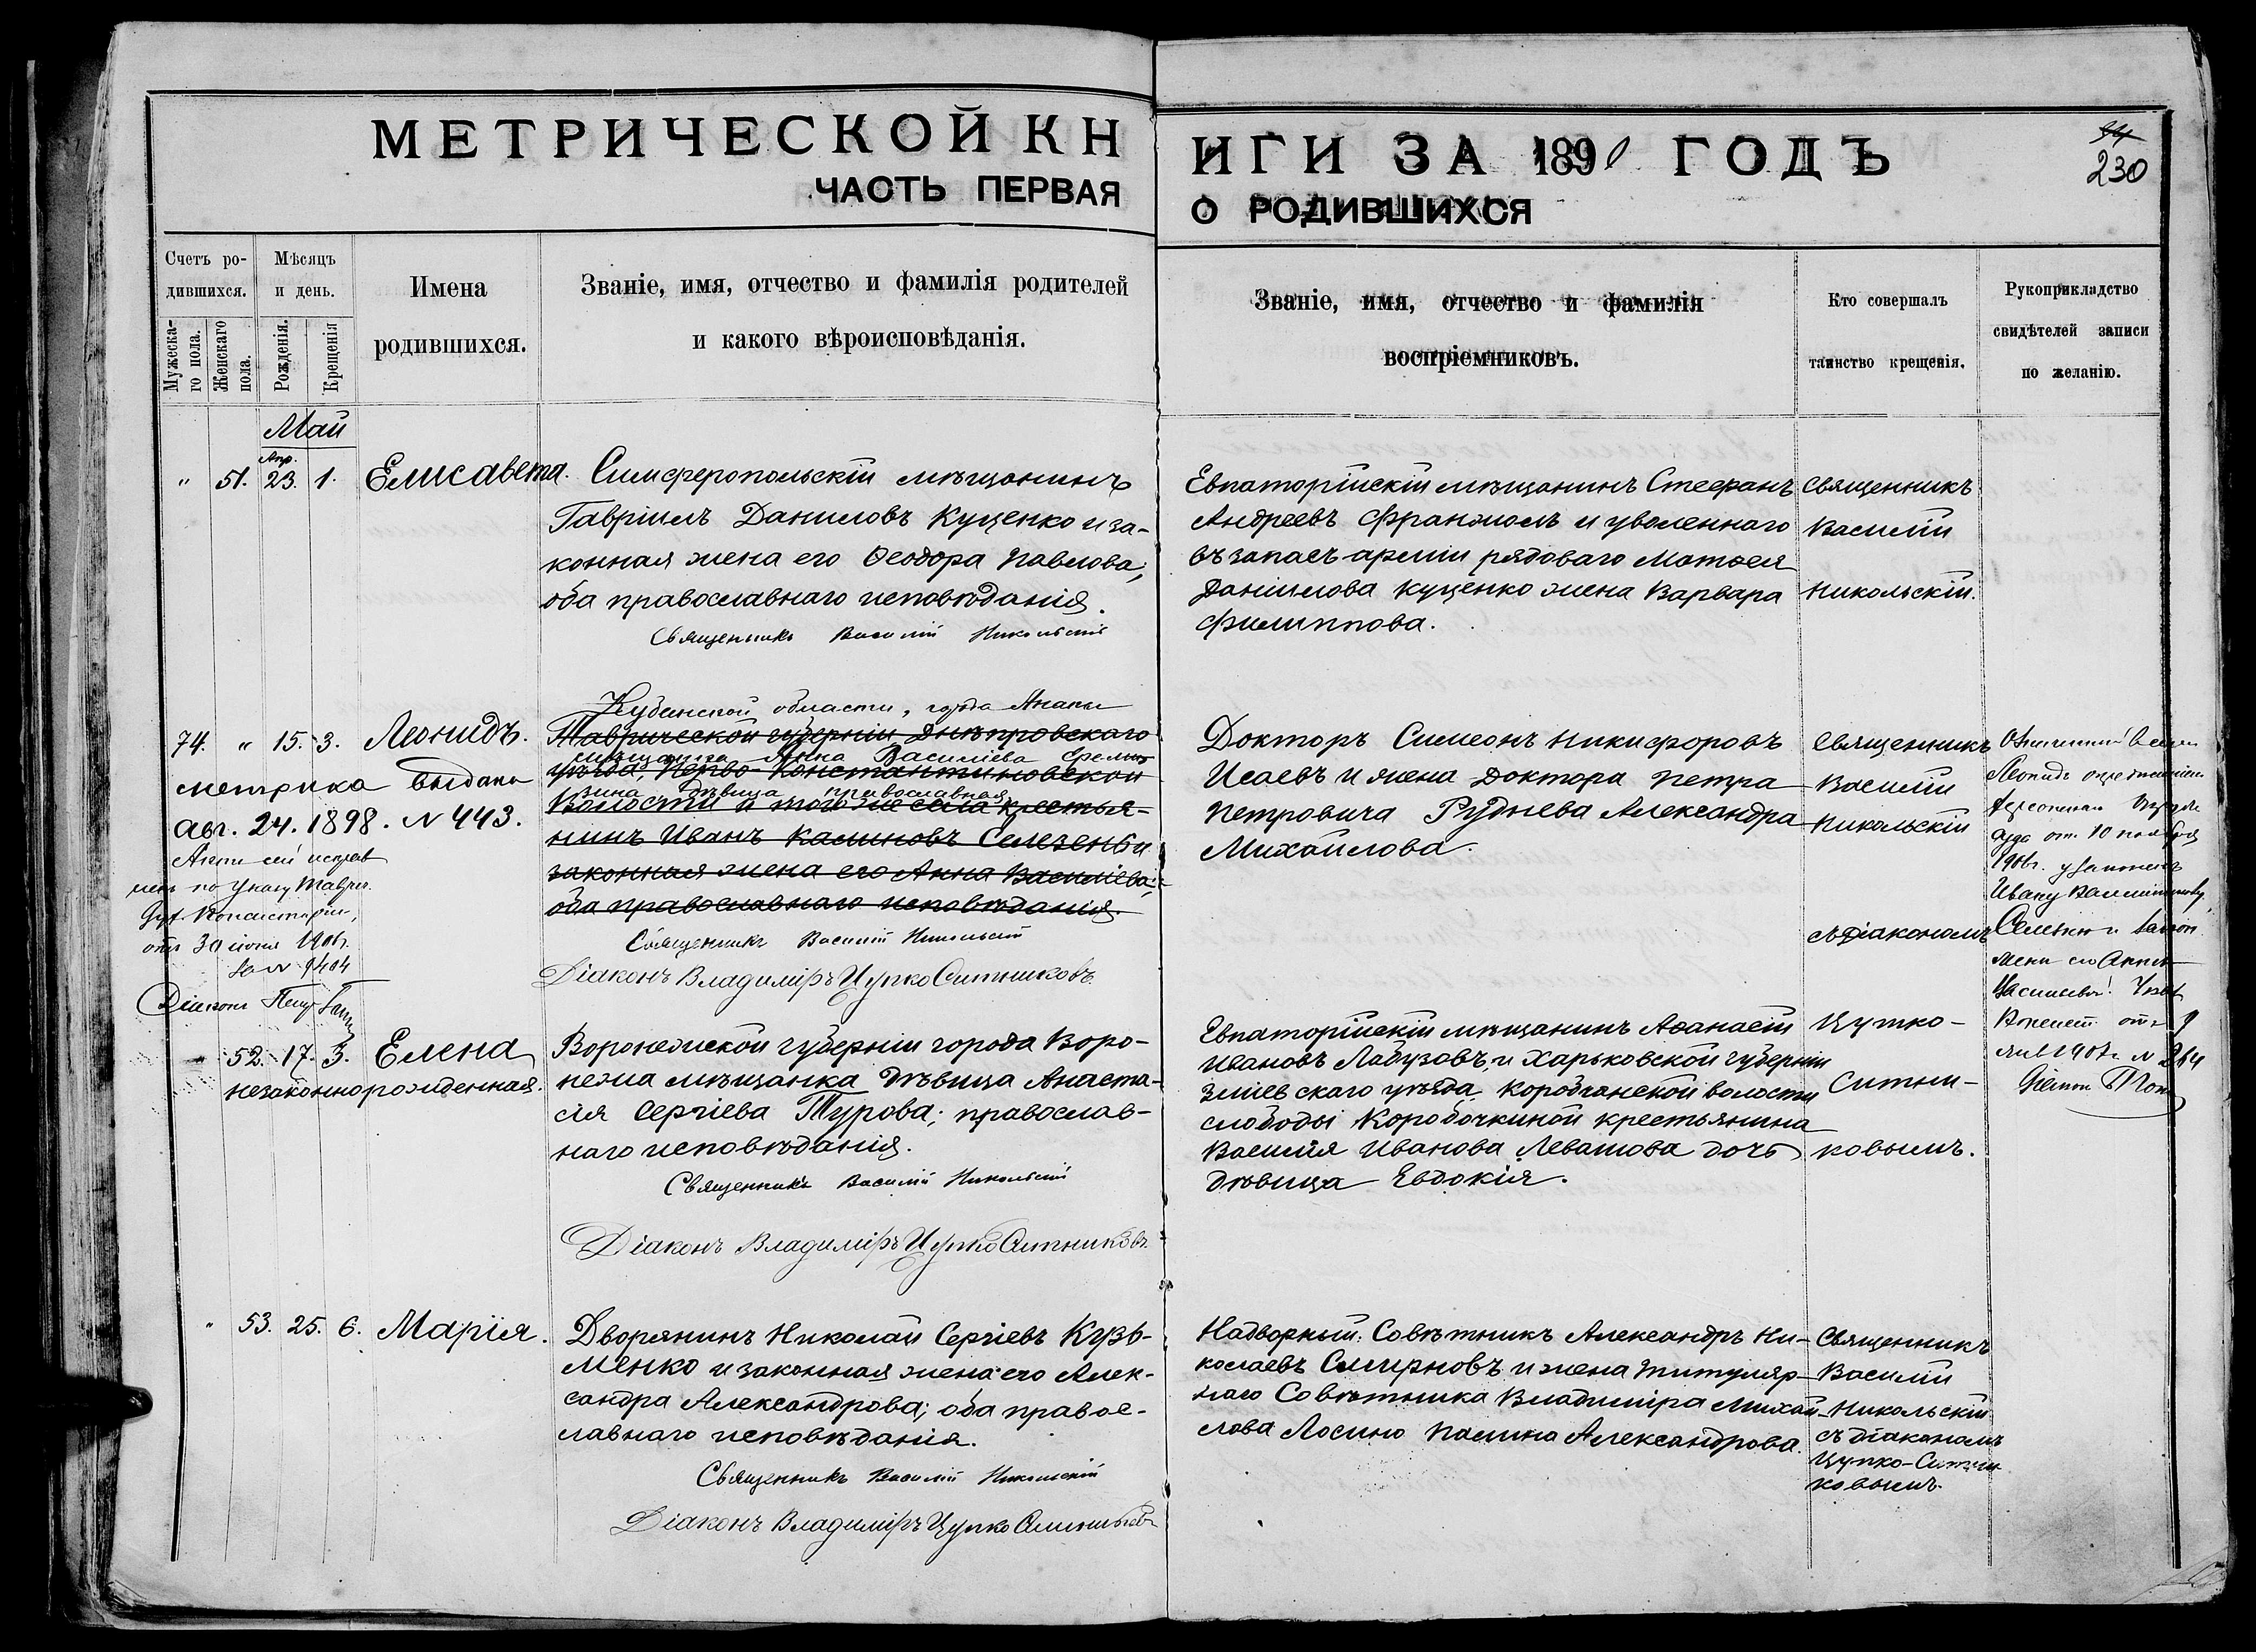 МЕТРИЧЕСКОЙ КН
ИГИ ЗА 1890 ГОДЪ
230
ЧАСТЬ ПЕРВАЯ
О РОДИВШИХСЯ
Счетъ ро-
дившихся.
Мужеска-
го пола.
Женскаго
пола.
Мѣсяцъ
и день.
Рожденія.
Крещенія
Имена
родившихся.
Званіе, имя, отчество и фамилія родителей
и какого вѣроисповѣданія.
Званіе, имя, отчество и фамилія
воспріемниковъ.
Кто совершалъ
таинство крещенія.
Рукоприкладство
свидѣтелей записи
по желанію.
Май
Апр.
" 51. 23. 1. Елисавета.
Симферопольскій мѣщанинъ
Гавріилъ Даниловъ Куценко и за-
конная жена его Ѳеодора Павлова;
оба православнаго исповѣданія.
Священникъ Василій Никольскій
Евпаторійскій мѣщанинъ Стефанъ
Андреевъ и уволеннаго
въ запасъ арміи рядоваго Матѳея
Даніилова Куценко жена Варвара
Филиппова.
Священникъ
Василій
Никольскій.
74. " 15. 3. Леонидъ.
метрика выдана
Авг. 24. 1898. N 443.
Актъ сей исправ
ленъ по указу Таврич.
Дух. Консисторіи,
отъ 30 іюня 1906г.
за N 9404
Діаконъ
Кубанской области, города Анапы
Таврической губерніи Днѣпровскаго
мѣщанка Анна Васильева Ереми
уѣзда, Перво-Константиновской
зина дѣвица православная
волости и того же села крестья-
нинъ Иванъ Калиновъ Селезень и
законная жена его Анна Василіева;
оба православнаго исповѣданія.
Священникъ Василій Никольскій
Діаконъ Владиміръ Цупко Ситниковъ
Докторъ Симеонъ Никифоровъ
Исаевъ и жена доктора Петра
Петровича Руднева Александра
Михайлова.
Священникъ
Василій
Никольскій
съ діакономъ
Леонидъ
суда отъ 10 ноября
1906г.
Ивану
жены его Анны
Васильевы.
отъ 9
янв 1907г N 264
52. 17. 3. Елена
незаконнорожденная.
Воронежской губерніи города Воро-
нежа мѣщанка дѣвица Анаста-
сія Сергіева Турова; православ-
наго исповѣданія.
Священникъ Василій Никольскій
Діаконъ Владиміръ Цупко Ситниковъ
Евпаторійскій мѣщанинъ Аѳанасій
Ивановъ Лабузовъ, и Харьковской губерніи
Зміевскаго уѣзда, Коробчанской волости
слободы Коробочкиной крестьянина
Василія Иванова Левашова дочь
дѣвица Евдокія.
Цупко-
Ситни-
ковымъ.
" 53. 25. 6. Марія.
Дворянинъ Николай Сергіевъ Кузь-
менко и законная жена его Алек-
сандра Александрова; оба правос-
лавнаго исповѣданія.
Священникъ Василій Никольскій
Діаконъ Владиміръ Цупко Ситниковъ
Надворный Совѣтникъ Александръ Ни-
колаевъ Смирновъ и жена титуляр-
наго Совѣтника Владиміра Михай-
лова Лосино Александрова.
Священникъ
Василій
Никольскій
съ діакономъ
Цупко-Ситни
ковымъ.